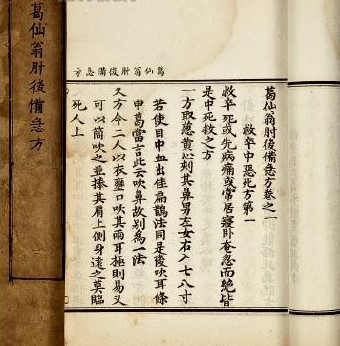 葛仙翁肘後備急方卷之一
救卒中惡死方第一
救卒死或先病痛或常居寢卧奄忽而絕皆
是中死救之方
一方取葱黄心刺其鼻男左女右入七八寸
若使目中血出佳扁鵲法同是後吹耳條
中葛當言此云吹鼻故别為一法
又方令二人以衣壅口吹其兩耳極則易又
可以筒吹之並捧其肩上側身遠之莫臨
死人上
葛仙翁肘後備急方
葛仙翁肘後備急方